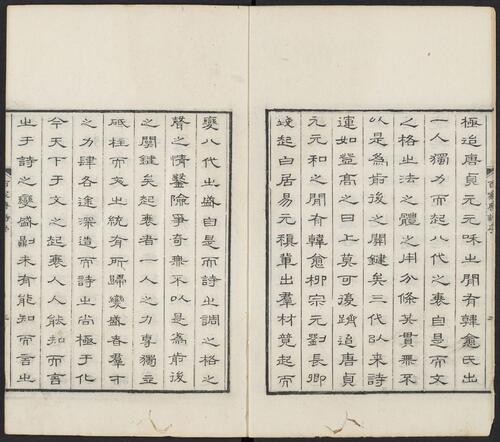 極迨唐貞元元咊之閒有韓愈氏出
一人獨力而起八代之衰自是而文
之格之法之體之用分條共貫無不
以是為前後之關鍵矣三代以來詩
運如登高之日上莫可復躋迨唐貞
元元和之閒有韓愈柳宗元劉長卿
錢起白居易元稹輩出羣材競起而
變八代之盛自是而詩之調之格之
聲之情鑿險爭奇無不以是為前後
之關鍵矣起衰者一人之力專獨立
砥柱而文之統有所歸變盛者羣才
之力肆各途深造而詩之尚極于化
今天下于文之起衰人人能知而言
之于詩之變盛則未有能知而言之